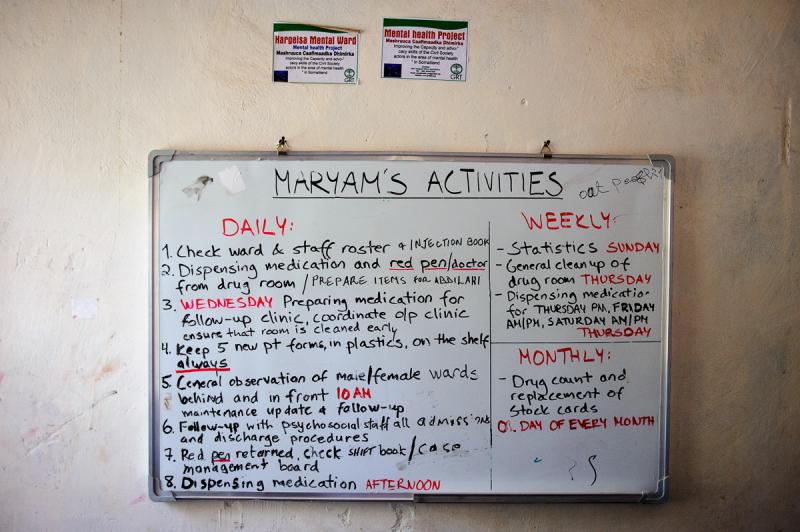 Hargeisa Mental Ward
Mental health Project
Mashruuca Caafimaadka Dhimirka
Improving the Capacity and advo-
cacy skills of the Civil Society
actors in the area of mental health
" in Somaliland
GRT
Mental health Project
Mashruuca Caafimaadka Dhimirka
Improving the Capacity and advo-
cacy skills of the Civil Society
actors in the area of mental health
" in Somaliland
GRT
MARYAM'S ACTIVITIES
oat
DAILY:
1. Check ward & staff roster + INJECTION BOOK
2. Dispensing medication and red pen/doctor
from drug room / PREPARE ITEMS for ABDILAHI
3. WEDNESDAY Preparing medication for
follow-up clinic, coordinate o/p clinic
ensure that room is cleaned early
4. Keep 5 new pt forms, in plastics, on the shelf
always
5. General observation of male/female wards
behind and in front 10 AM
maintenance update & follow-up
6. Follow-up with psychosocial staff all admissions
and discharge procedures
7. Red pen returned, check SHIFT book / Case
management board
8. Dispensing medication AFTERNOON
WEEKLY:
- Statistics SUNDAY
- General cleanup of
drug room THURSDAY
- Dispensing medication
for THURSDAY PM, FRIDAY
AM/PM, SATURDAY AM/PM
THURSDAY
MONTHLY:
- Drug count and
replacement of
stock cards
01. DAY OF EVERY MONTH